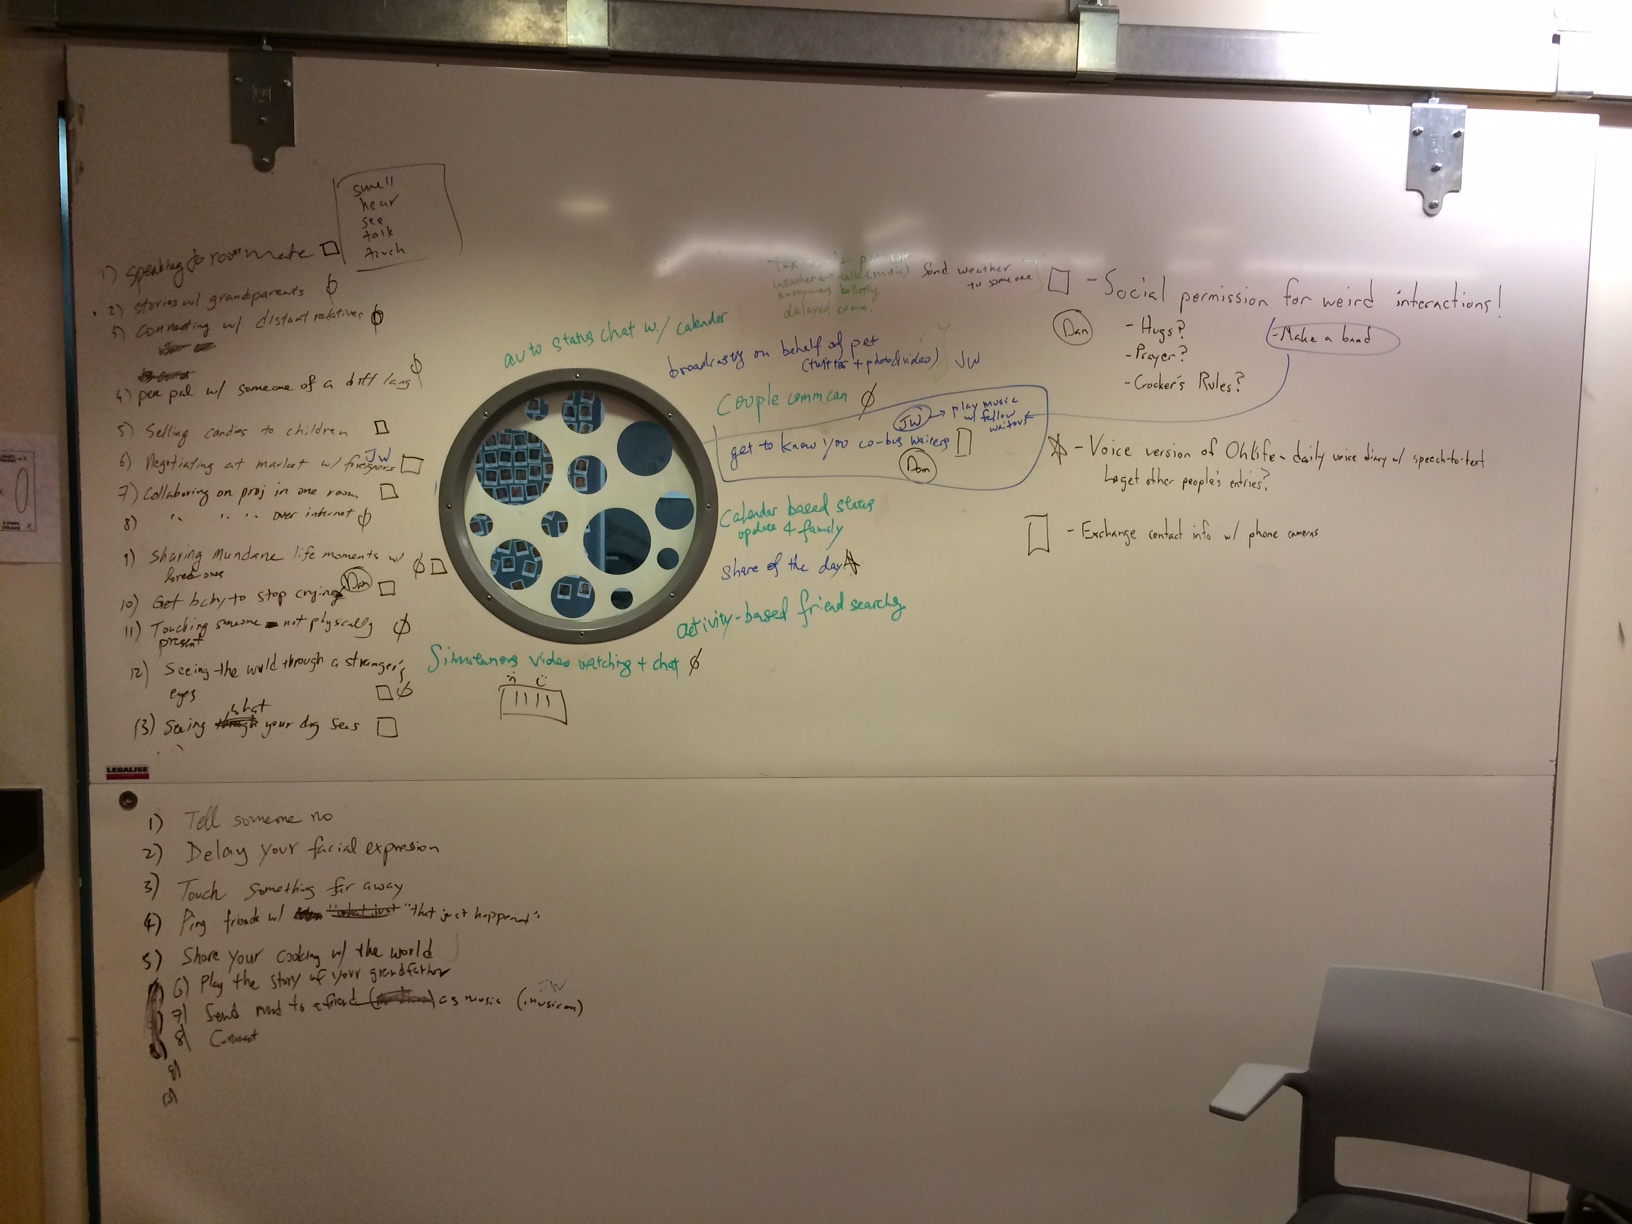 smell
hear
see
talk
touch
1) speaking to roommate
2) stories w/ grandparents
3) connecting w/ distant relatives
4) pen pal w/ someone of a diff lang
5) Selling candies to children
JW
6) Negotiating at market w/
7) Collaboring on proj in one room
8) " " " " over internet
9) sharing mundane life moments w/
loved ones
Dan
10) Get baby to stop crying
11) Touching someone not physcally
present
12) Seeing the world through a stranger's
eyes
what
13) Seeing your dog sees
auto status chat w/ calender
delayed comm.
Send weather
to someone
broadcasty on behalf of pet
(twitter + photo & video) JW
Couple comm can
JW → play music
w/ fellow
waitors
get to know you co-bus waiters
Dan
Calender based status
update 4 family
Share of the day
activity-based friend searchy
Simultaneous video watching + chat
- Social permission for weird interactions!
Dan
- Hugs?
- Make a band
- Prayer?
- Crocker's Rules?
- Voice version of Ohlife - daily voice diary w/ speech-to-text
get other people's entries?
- Exchange contact info w/ phone cameras
LEGALISE
1) Tell someone no
2) Delay your facial expresion
3) Touch something far away
4) Ping friends w/ "what just" "that just happened"
5) Share your cooking w/ the world
6) Play the story of your grandfather
JW
7) Send mood to a friend as music (musican)
8) Connect
9)
10)